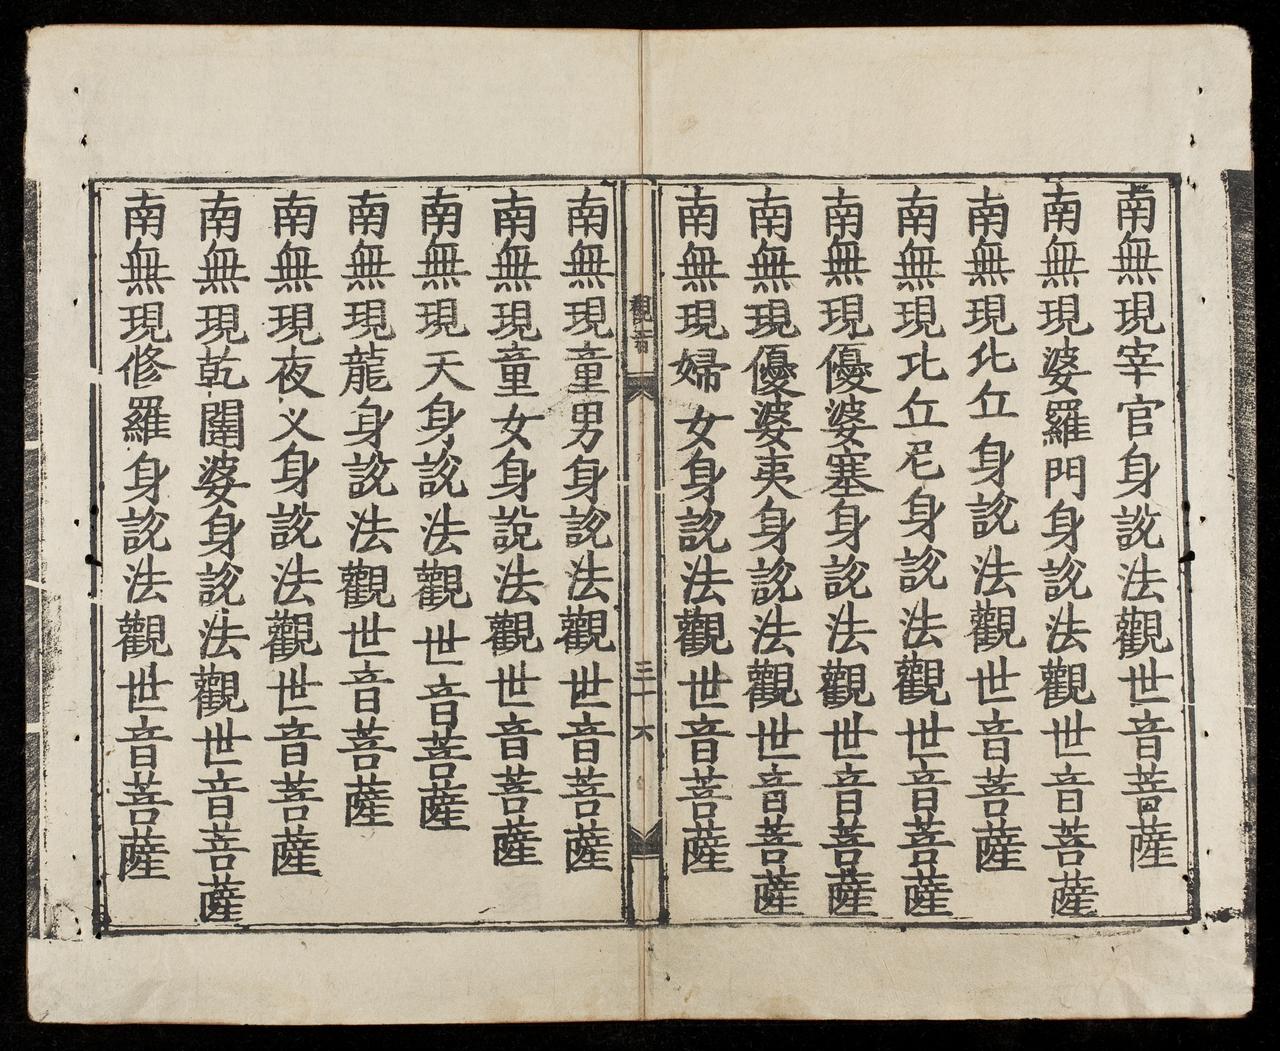 南無現宰官身說法觀世音菩薩
南無現婆羅門身說法觀世音菩薩
南無現比丘身說法觀世音菩薩
南無現比丘尼身說法觀世音菩薩
南無現優婆塞身說法觀世音菩薩
南無現優婆夷身說法觀世音菩薩
南無現婦女身說法觀世音菩薩
觀音
三十六
南無現童男身說法觀世音菩薩
南無現童女身說法觀世音菩薩
南無現天身說法觀世音菩薩
南無現龍身說法觀世音菩薩
南無現夜义身說法觀世音菩薩
南無現乾闥婆身說法觀世音菩薩
南無現修羅身說法觀世音菩薩